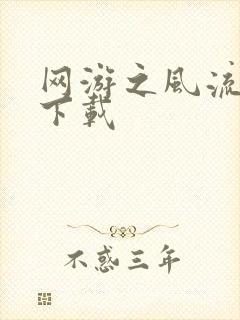 网游之风流
下载
不惑三年